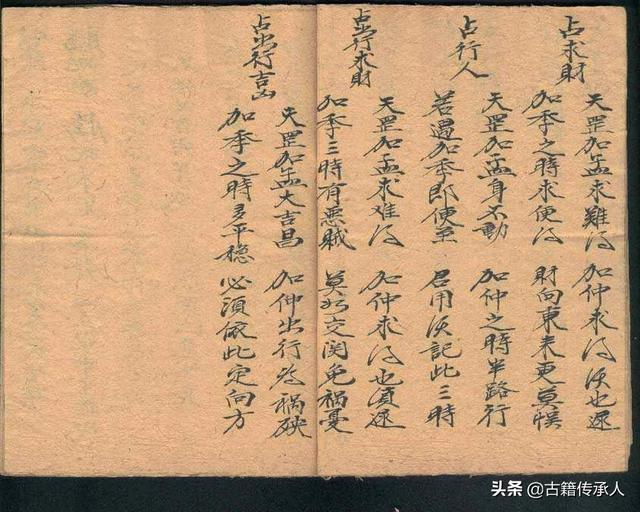 占求財
天罡加孟求難得 加仲求得须也遲
加季之時求便得 財向東来更莫悮
占行人
天罡加孟身不動 加仲之時半路行
若遇加季即便至 君用须記此三時
占出行求財
天罡加孟求难得 加仲求得也須遲
加季三時有惡賊 莫於交関免禍憂
占出行吉凶
天罡加孟大吉昌 加仲出行为禍殃
加季之時多平穩 必須依此定向方
头条 @古籍传承人